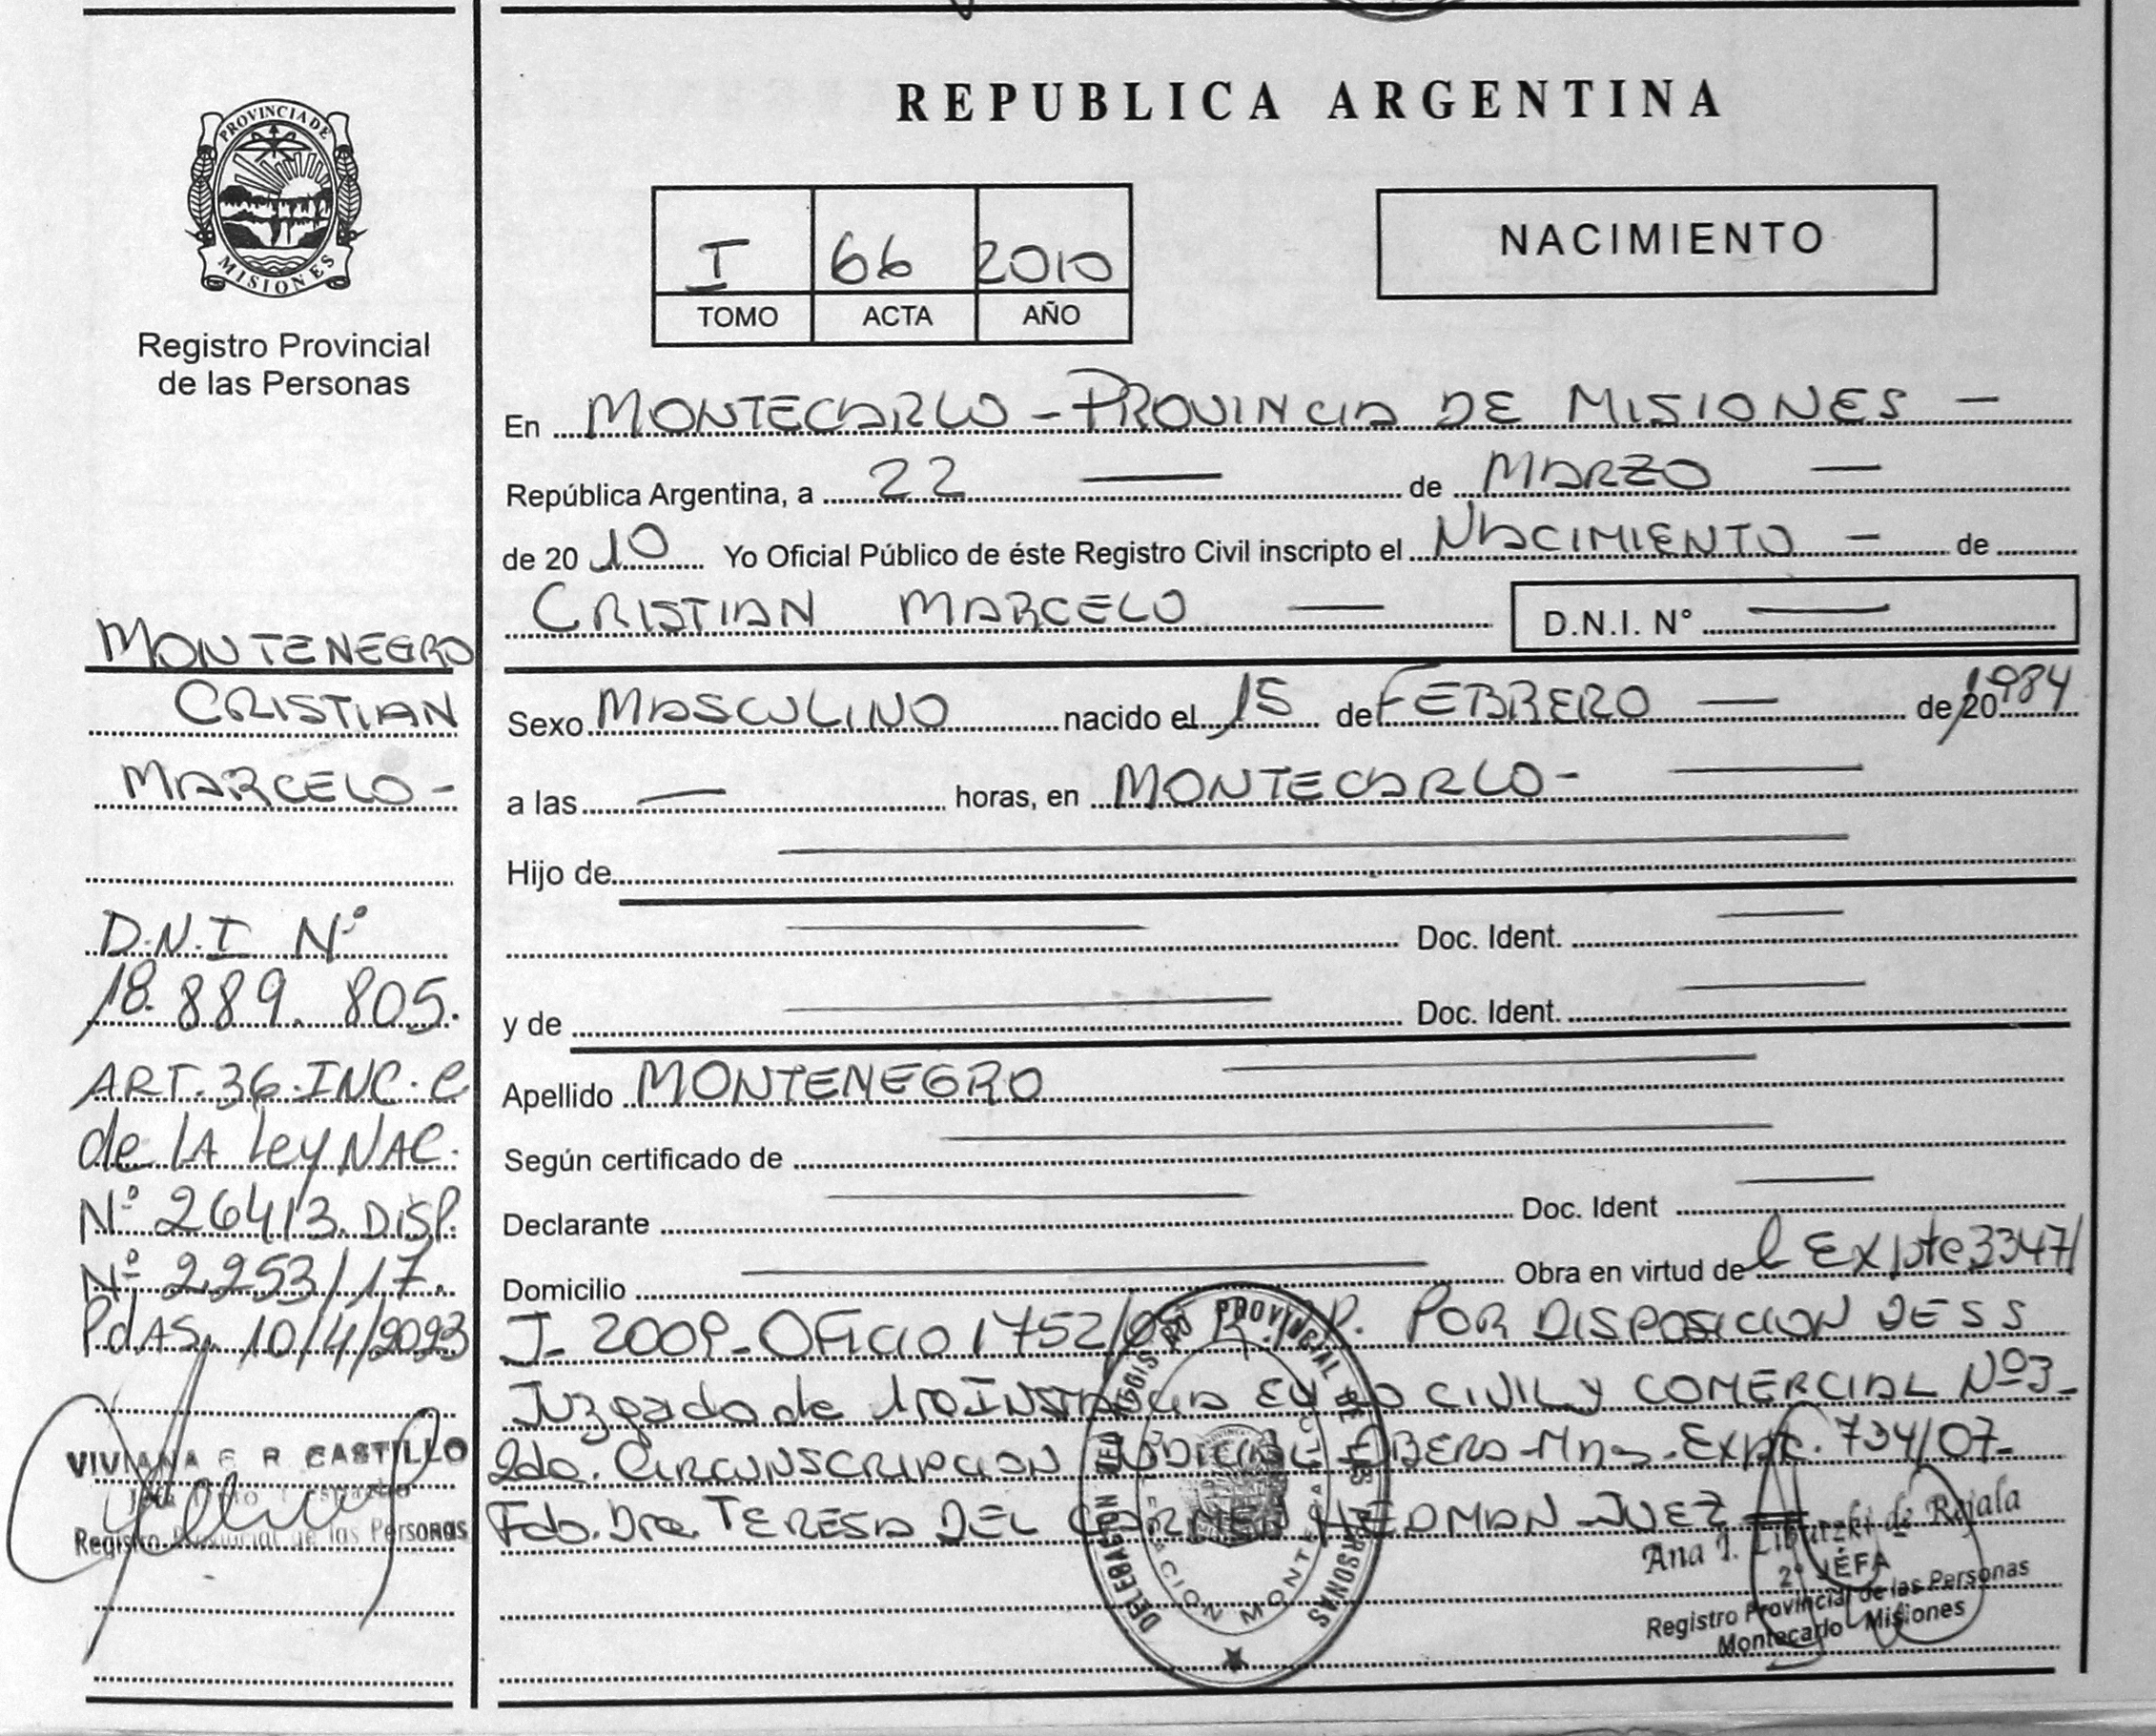 PROVINCIA DE
MISIONES
Registro Provincial
de las Personas
MONTENEGRO
CRISTIAN
MARCELO-
D.N.I Nº
18.889.805.
ART.36.INC.C
de LA Ley NAC.
Nº 26413. DISP.
Nº 2.253/17.
PdAS. 10/4/2023
VIVIANA E R CASTILLO
Registro Provincial de las Personas
REPUBLICA ARGENTINA
I 66 2010
TOMO ACTA AÑO
NACIMIENTO
En MONTECARLO - PROVINCIA DE MISIONES -
República Argentina, a 22 — de MARZO —
de 20 10 Yo Oficial Público de éste Registro Civil inscripto el NACIMIENTO — de
CRISTIAN MARCELO — D.N.I. N° —
Sexo MASCULINO nacido el 15 de FEBRERO — de 20 1984
a las — horas, en MONTECARLO- —
Hijo de —
— Doc. Ident. —
y de — Doc. Ident. —
Apellido MONTENEGRO —
Según certificado de —
Declarante — Doc. Ident —
Domicilio — Obra en virtud de l Expte 3347/
J- 2009-Oficio 1752/09 R.P.P. POR DISPOSICION DE SS
Juzgado de 1ra INSTANCIA EN LO CIVIL y COMERCIAL Nº3-
2da. CIRCUNSCRIPCION JUDICIAL OBERA-Mns-Expte. 734/07-
Fdo. Dra. TERESA DEL CARMEN HEDMAN JUEZ
REGISTRO PROVINCIAL DE LAS PERSONAS
DELEGACION MONTECARLO
Ana I. de Rojala
2° JEFA
Registro Provincial de las Personas
Montecarlo - Misiones